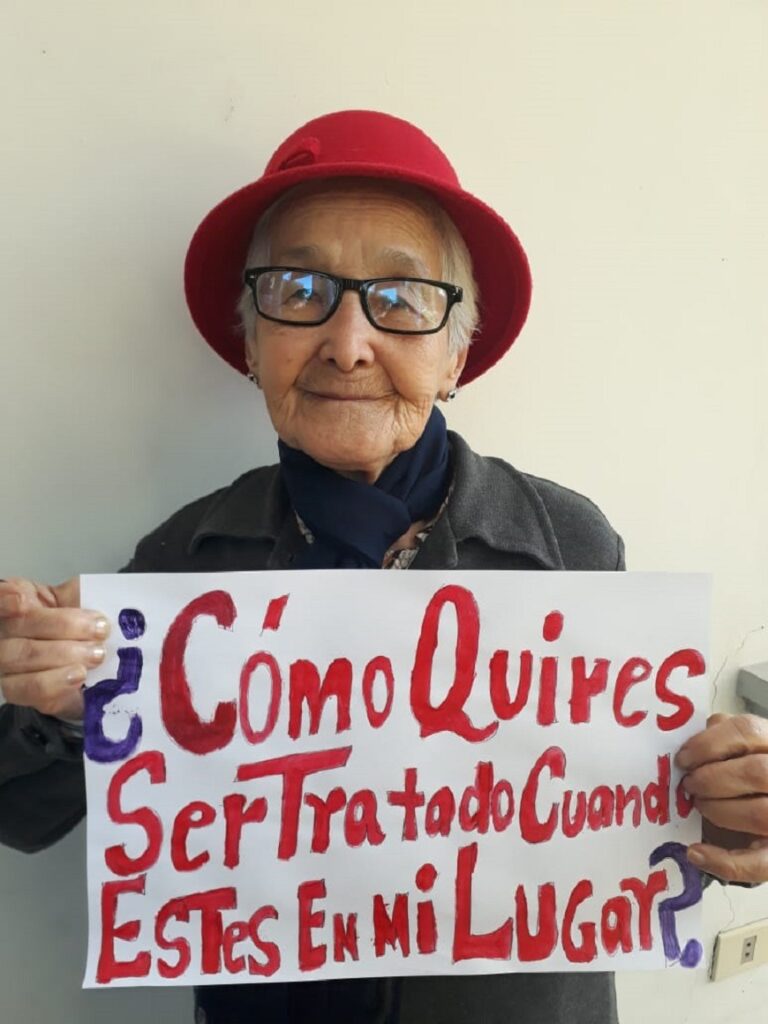 ¿Cómo Quires
Ser Tratado Cuando
Estes En Mi Lugar?